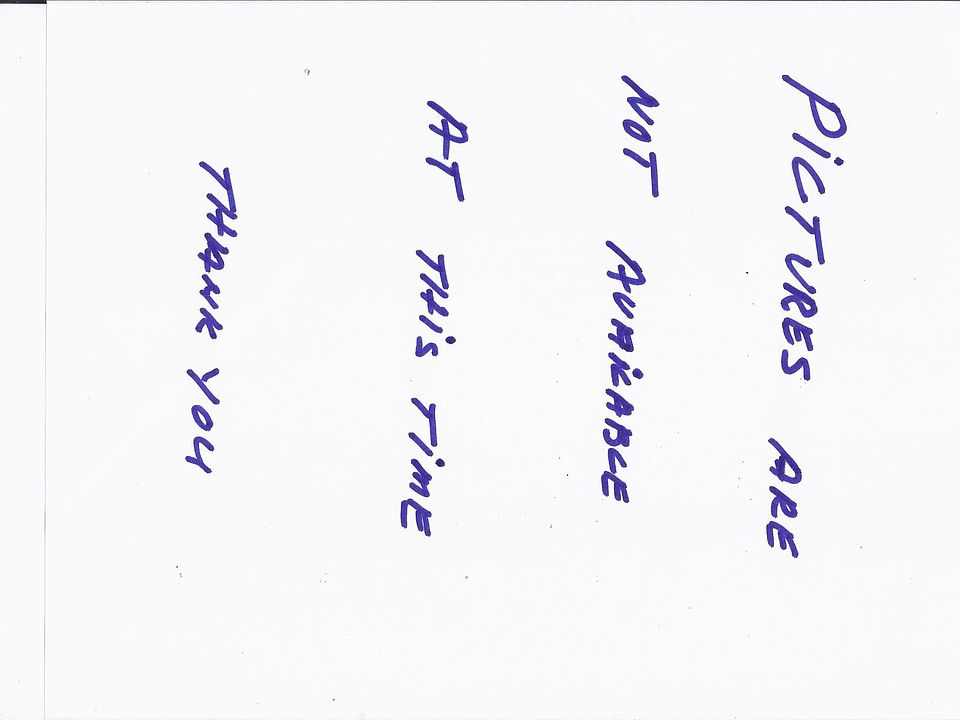 PiCTURES ARE
NOT AVAiLABLE
AT THiS TiME
THANK YOU